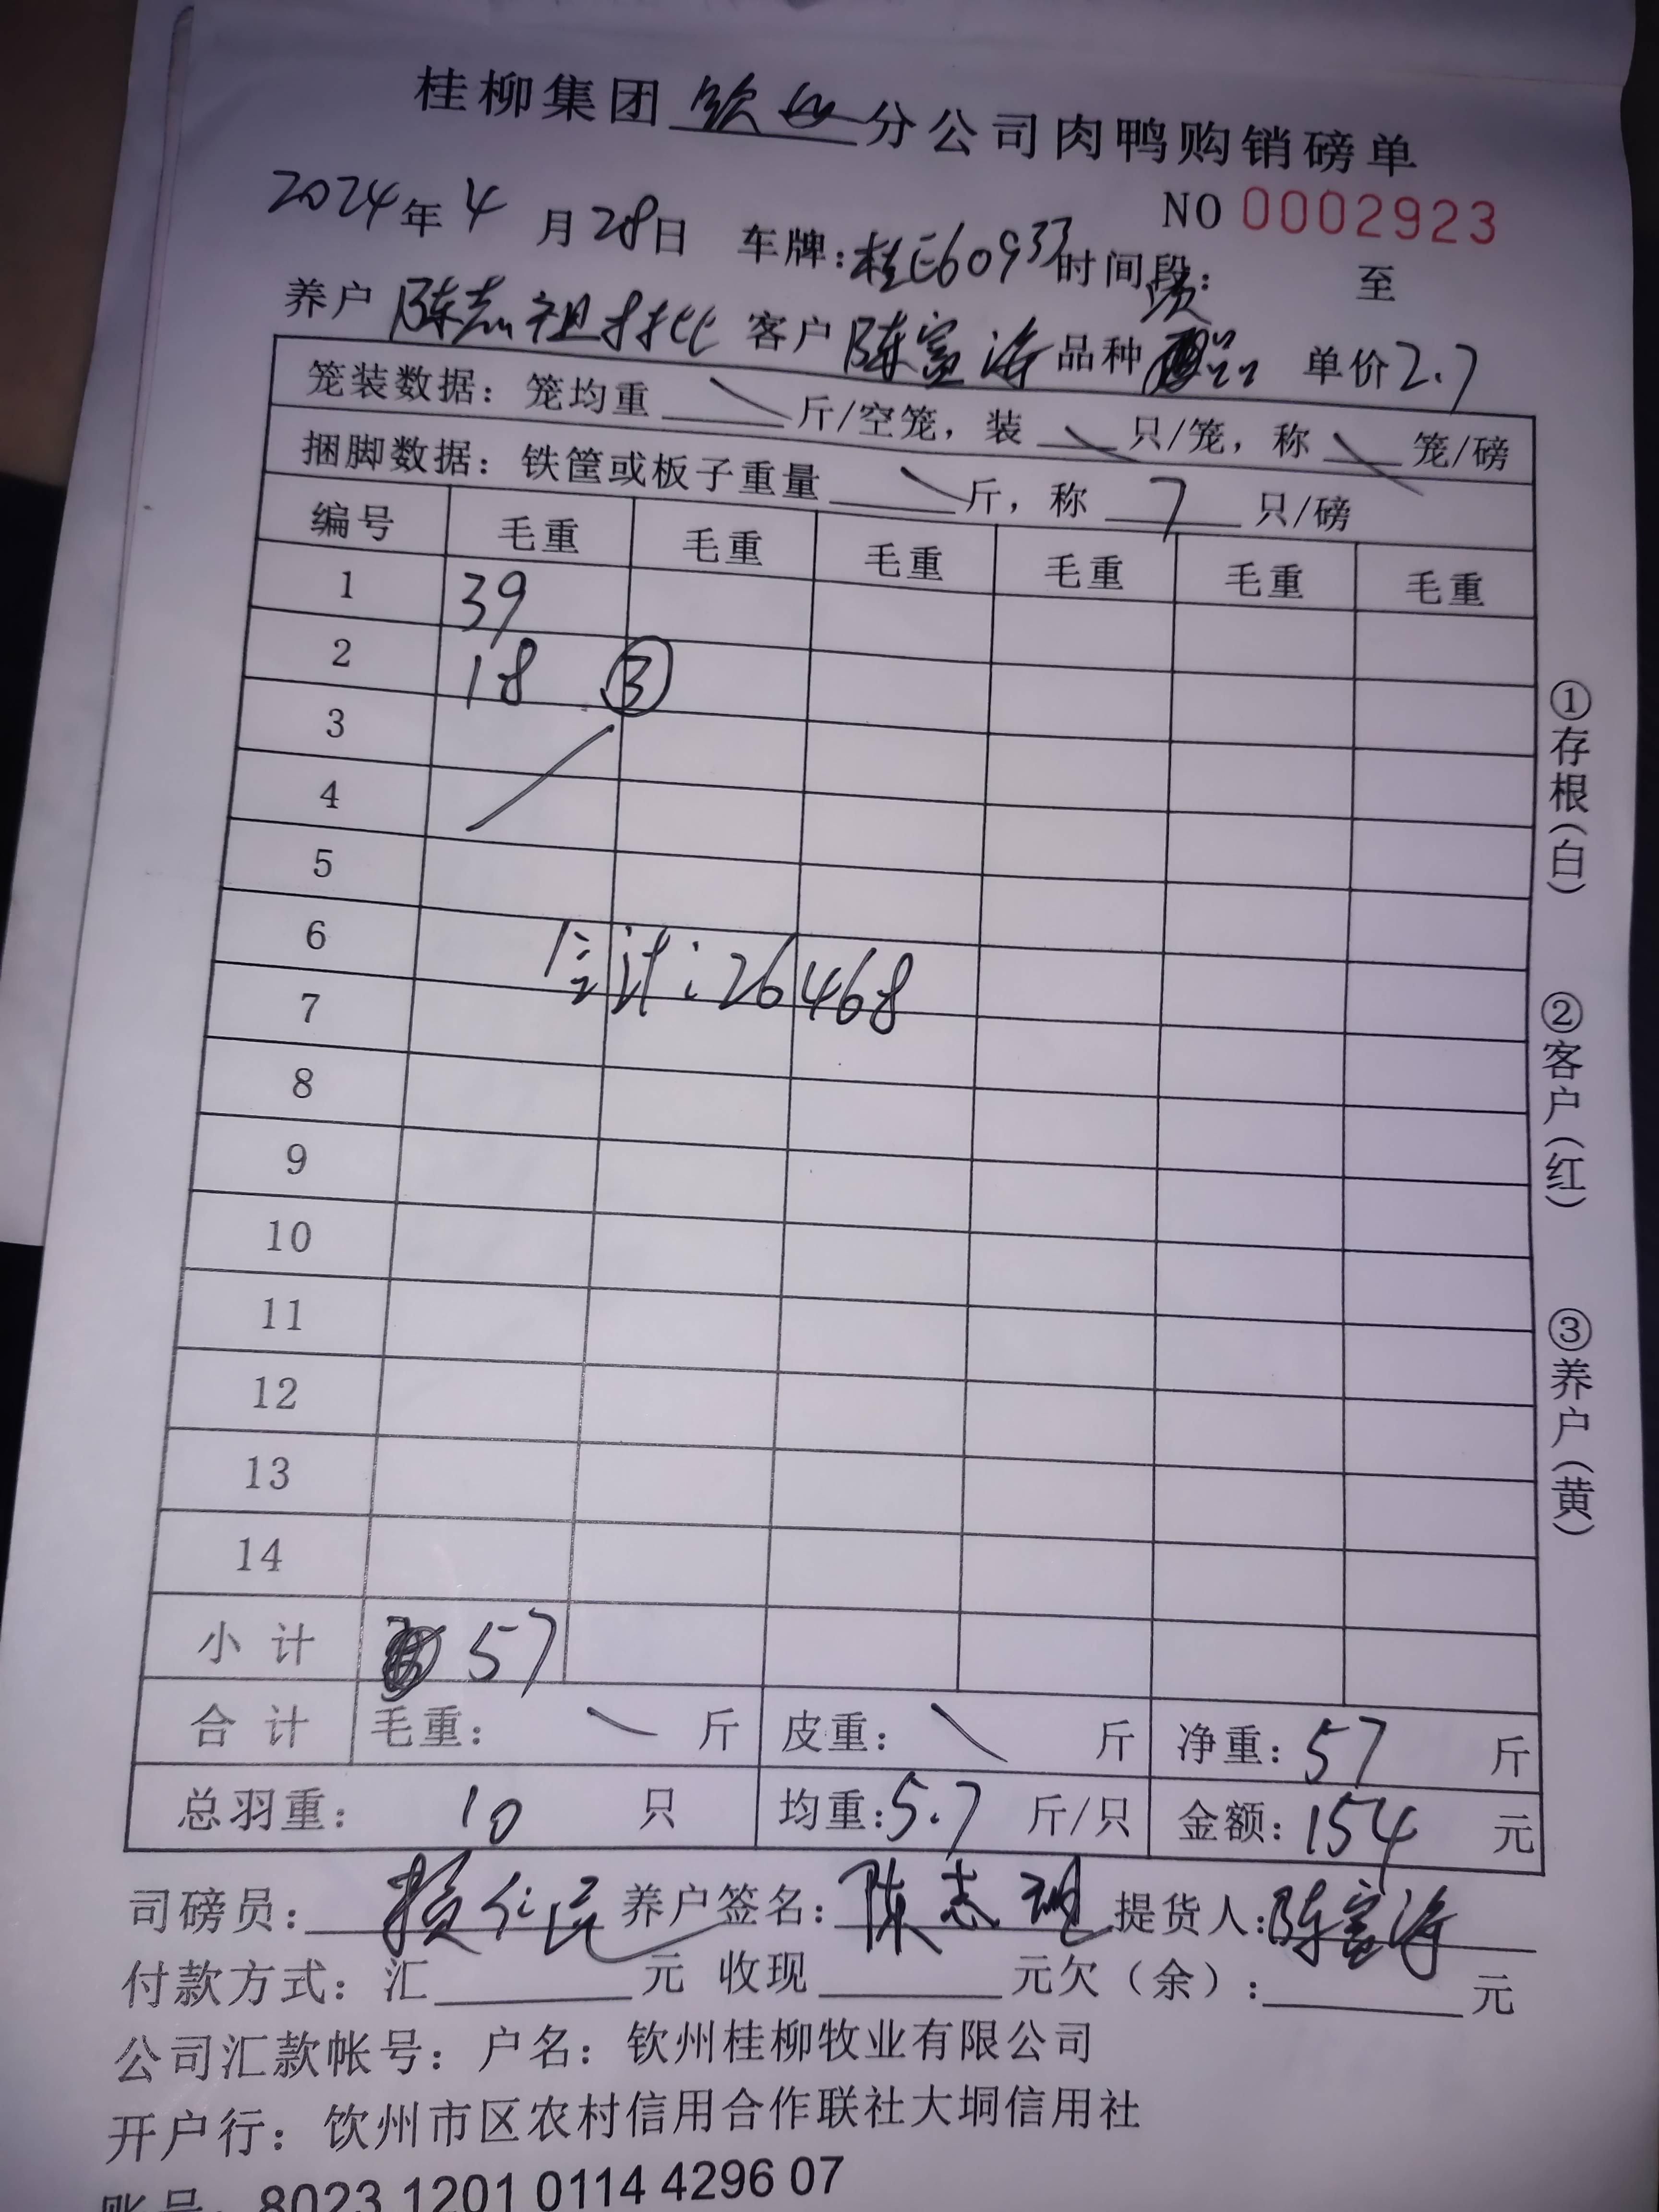 桂柳集团 钦州 分公司肉鸭购销磅单
NO 0002923
2024年4月28日 车牌:桂E60933 时间段: 至
养户 陈志祖 客户 陈富海 品种 单价2.7
笼装数据: 笼均重 斤/空笼, 装 只/笼, 称 笼/磅
捆脚数据: 铁筐或板子重量 斤, 称 7 只/磅
编号 毛重 毛重 毛重 毛重 毛重 毛重
1 39
2 18 ③
3
4
5
6
总计:26468
7
8
9
10
11
12
13
14
小计 57
合计 毛重: 斤 皮重: 斤 净重: 57 斤
总羽重: 10 只 均重:5.7 斤/只 金额:154 元
司磅员: 养户签名: 陈志祖 提货人:陈富海
付款方式: 汇 元 收现 元欠(余): 元
公司汇款帐号: 户名: 钦州桂柳牧业有限公司
开户行: 钦州市区农村信用合作联社大垌信用社
账号: 8023 1201 0114 4296 07
①存根(白)
②客户(红)
③养户(黄)